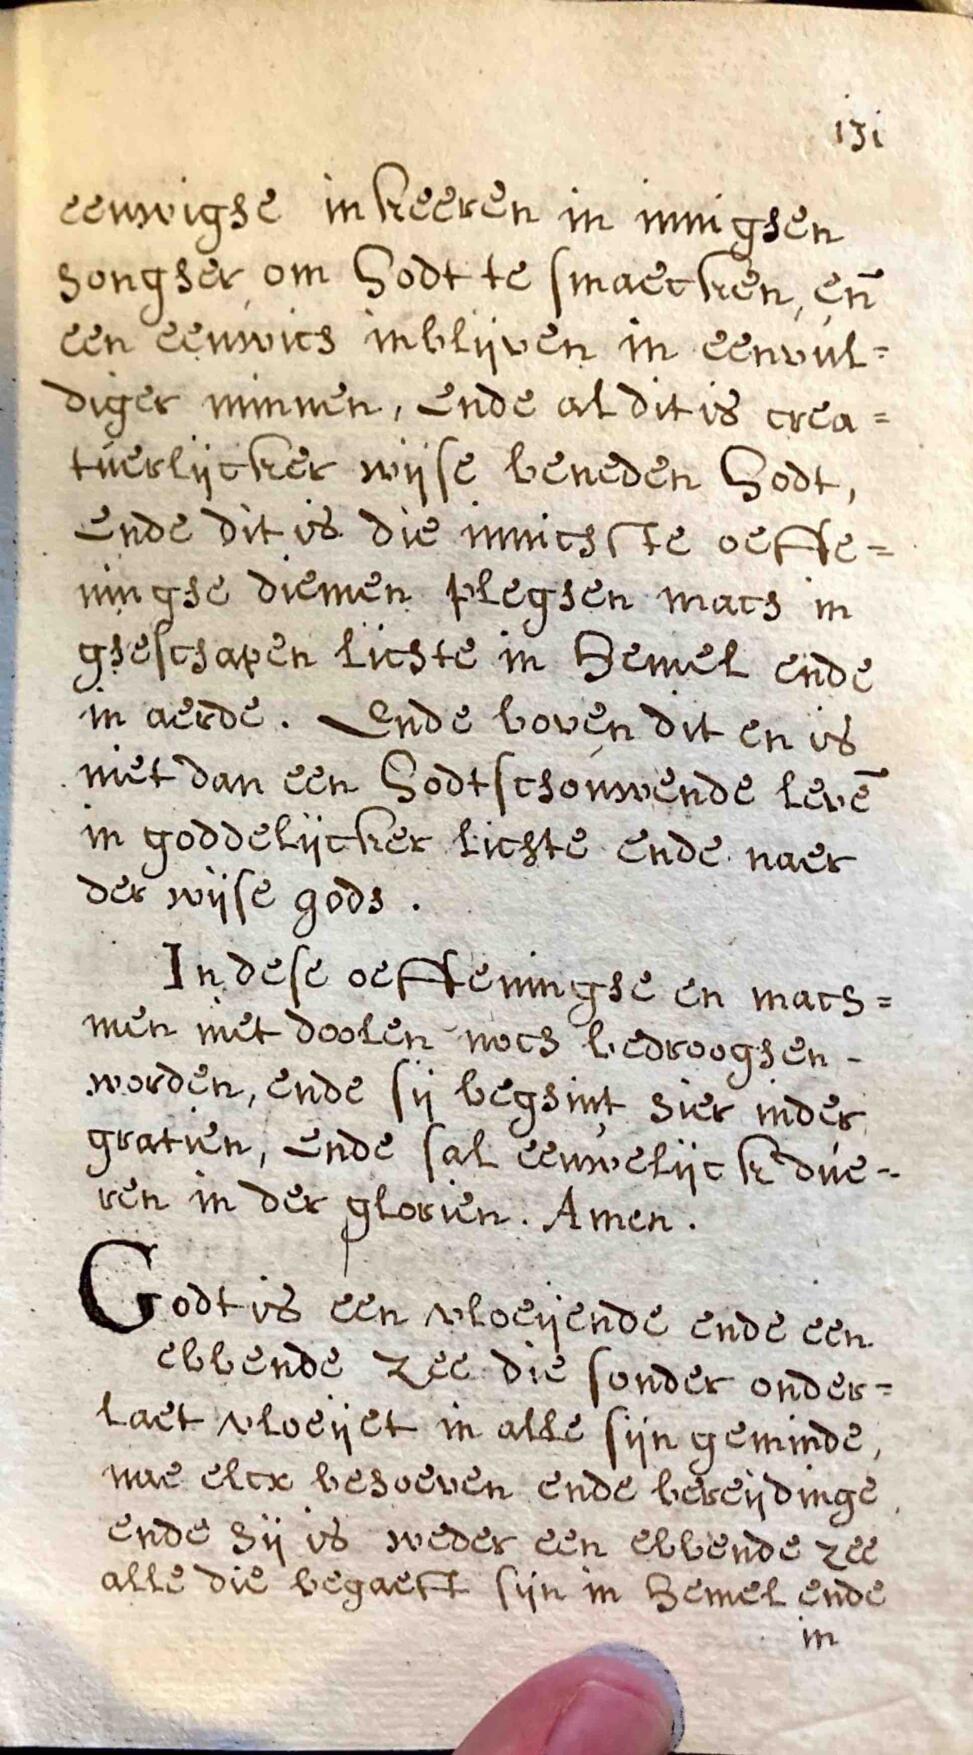 131
eeuwighe inkeeren in innighen
hongher, om Godt te smaecken, en̄
een eeuwich inblijven in eenvul=
diger minnen, ende al dit is crea=
tuerlijcker wijse beneden Godt,
Ende dit is die innichste oeffe=
ninghe diemen pleghen mach in
gheschapen lichte in Hemel ende
in aerde. Ende boven dit en is
niet dan een Godtschouwende levē
in goddelijcker lichte ende naer
der wijse gods.
In dese oeffeninghe en mach=
men niet doolen noch bedrooghen -
worden, ende sij beghint hier inder
gratien, Ende sal eeuwelijck due=
ren in der glorien. Amen.
Godt is een vloeijende ende een
ebbende zee die sonder onder=
laet vloeijet in alle sijn geminde,
nae elcx behoeven ende bereijdinge
ende hij is weder een ebbende zee
alle die begaeft sijn in Hemel ende
in